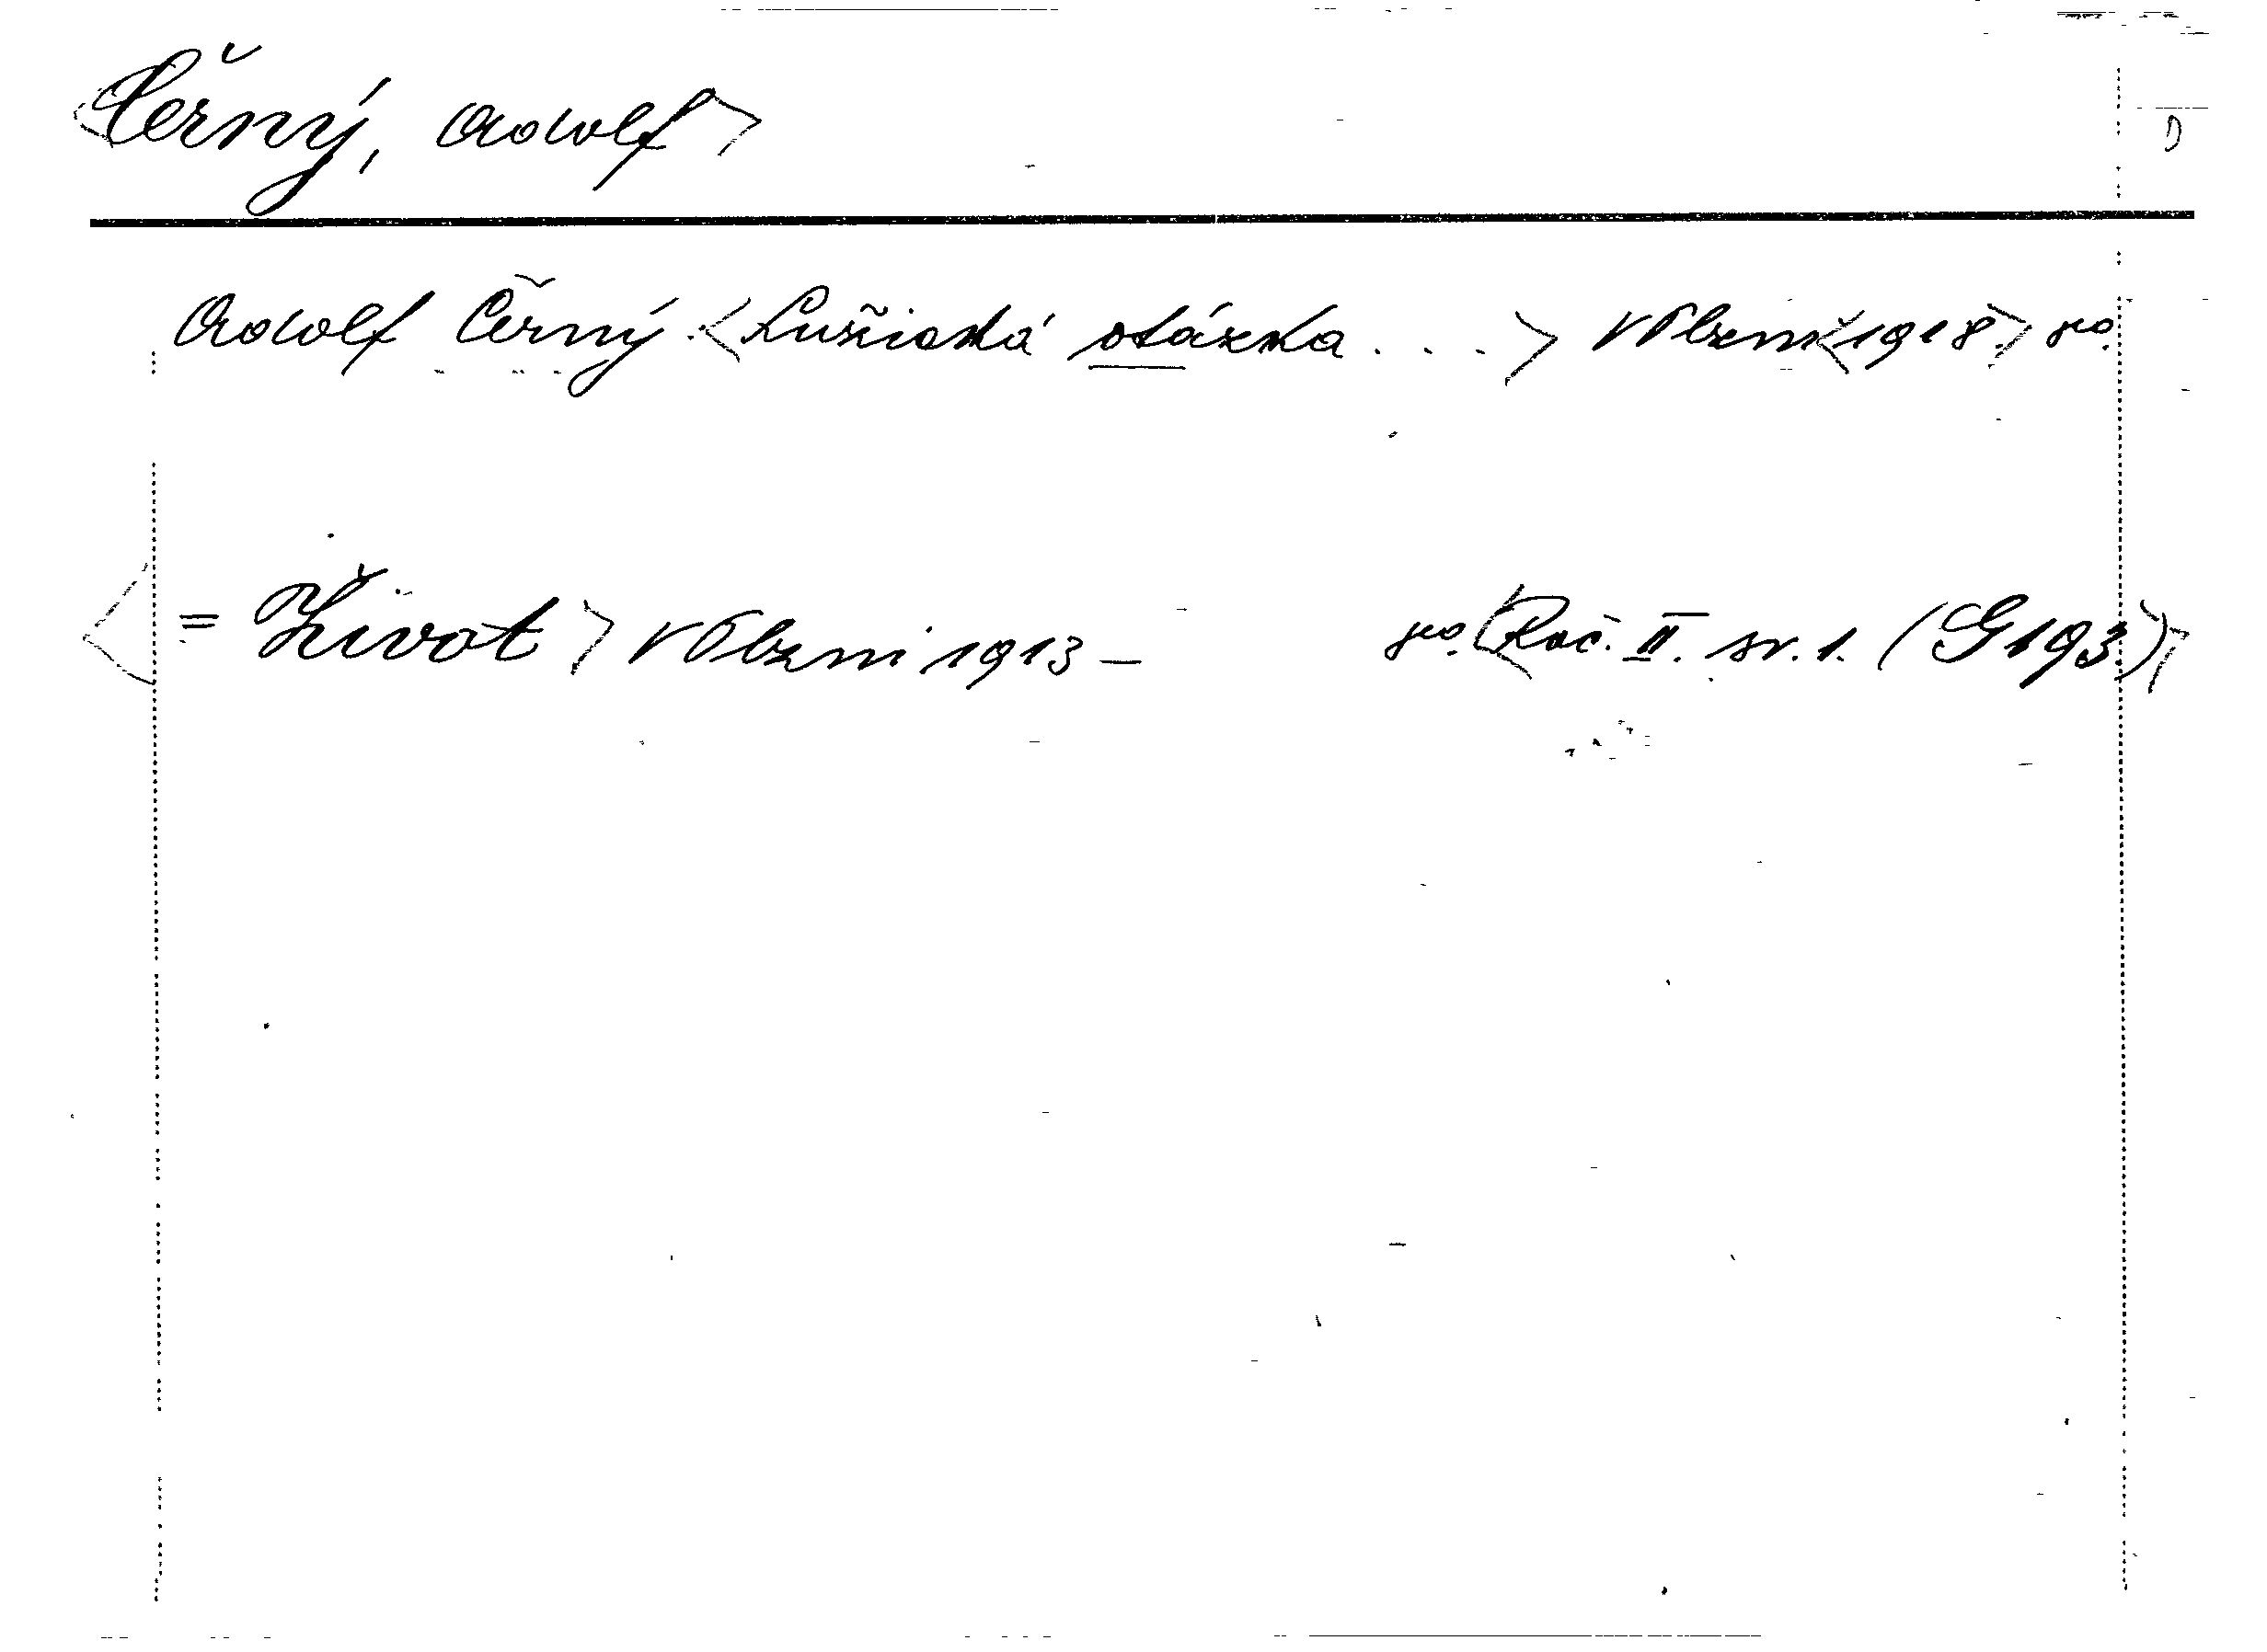 <Černý, Adolf>
Adolf Černý <Lužická otázka . . . > V Plzni <1918.> 8º.
<= Život> V Plzni 1913 — 8º. <Roč. II. sv. 1. (G 193.)>